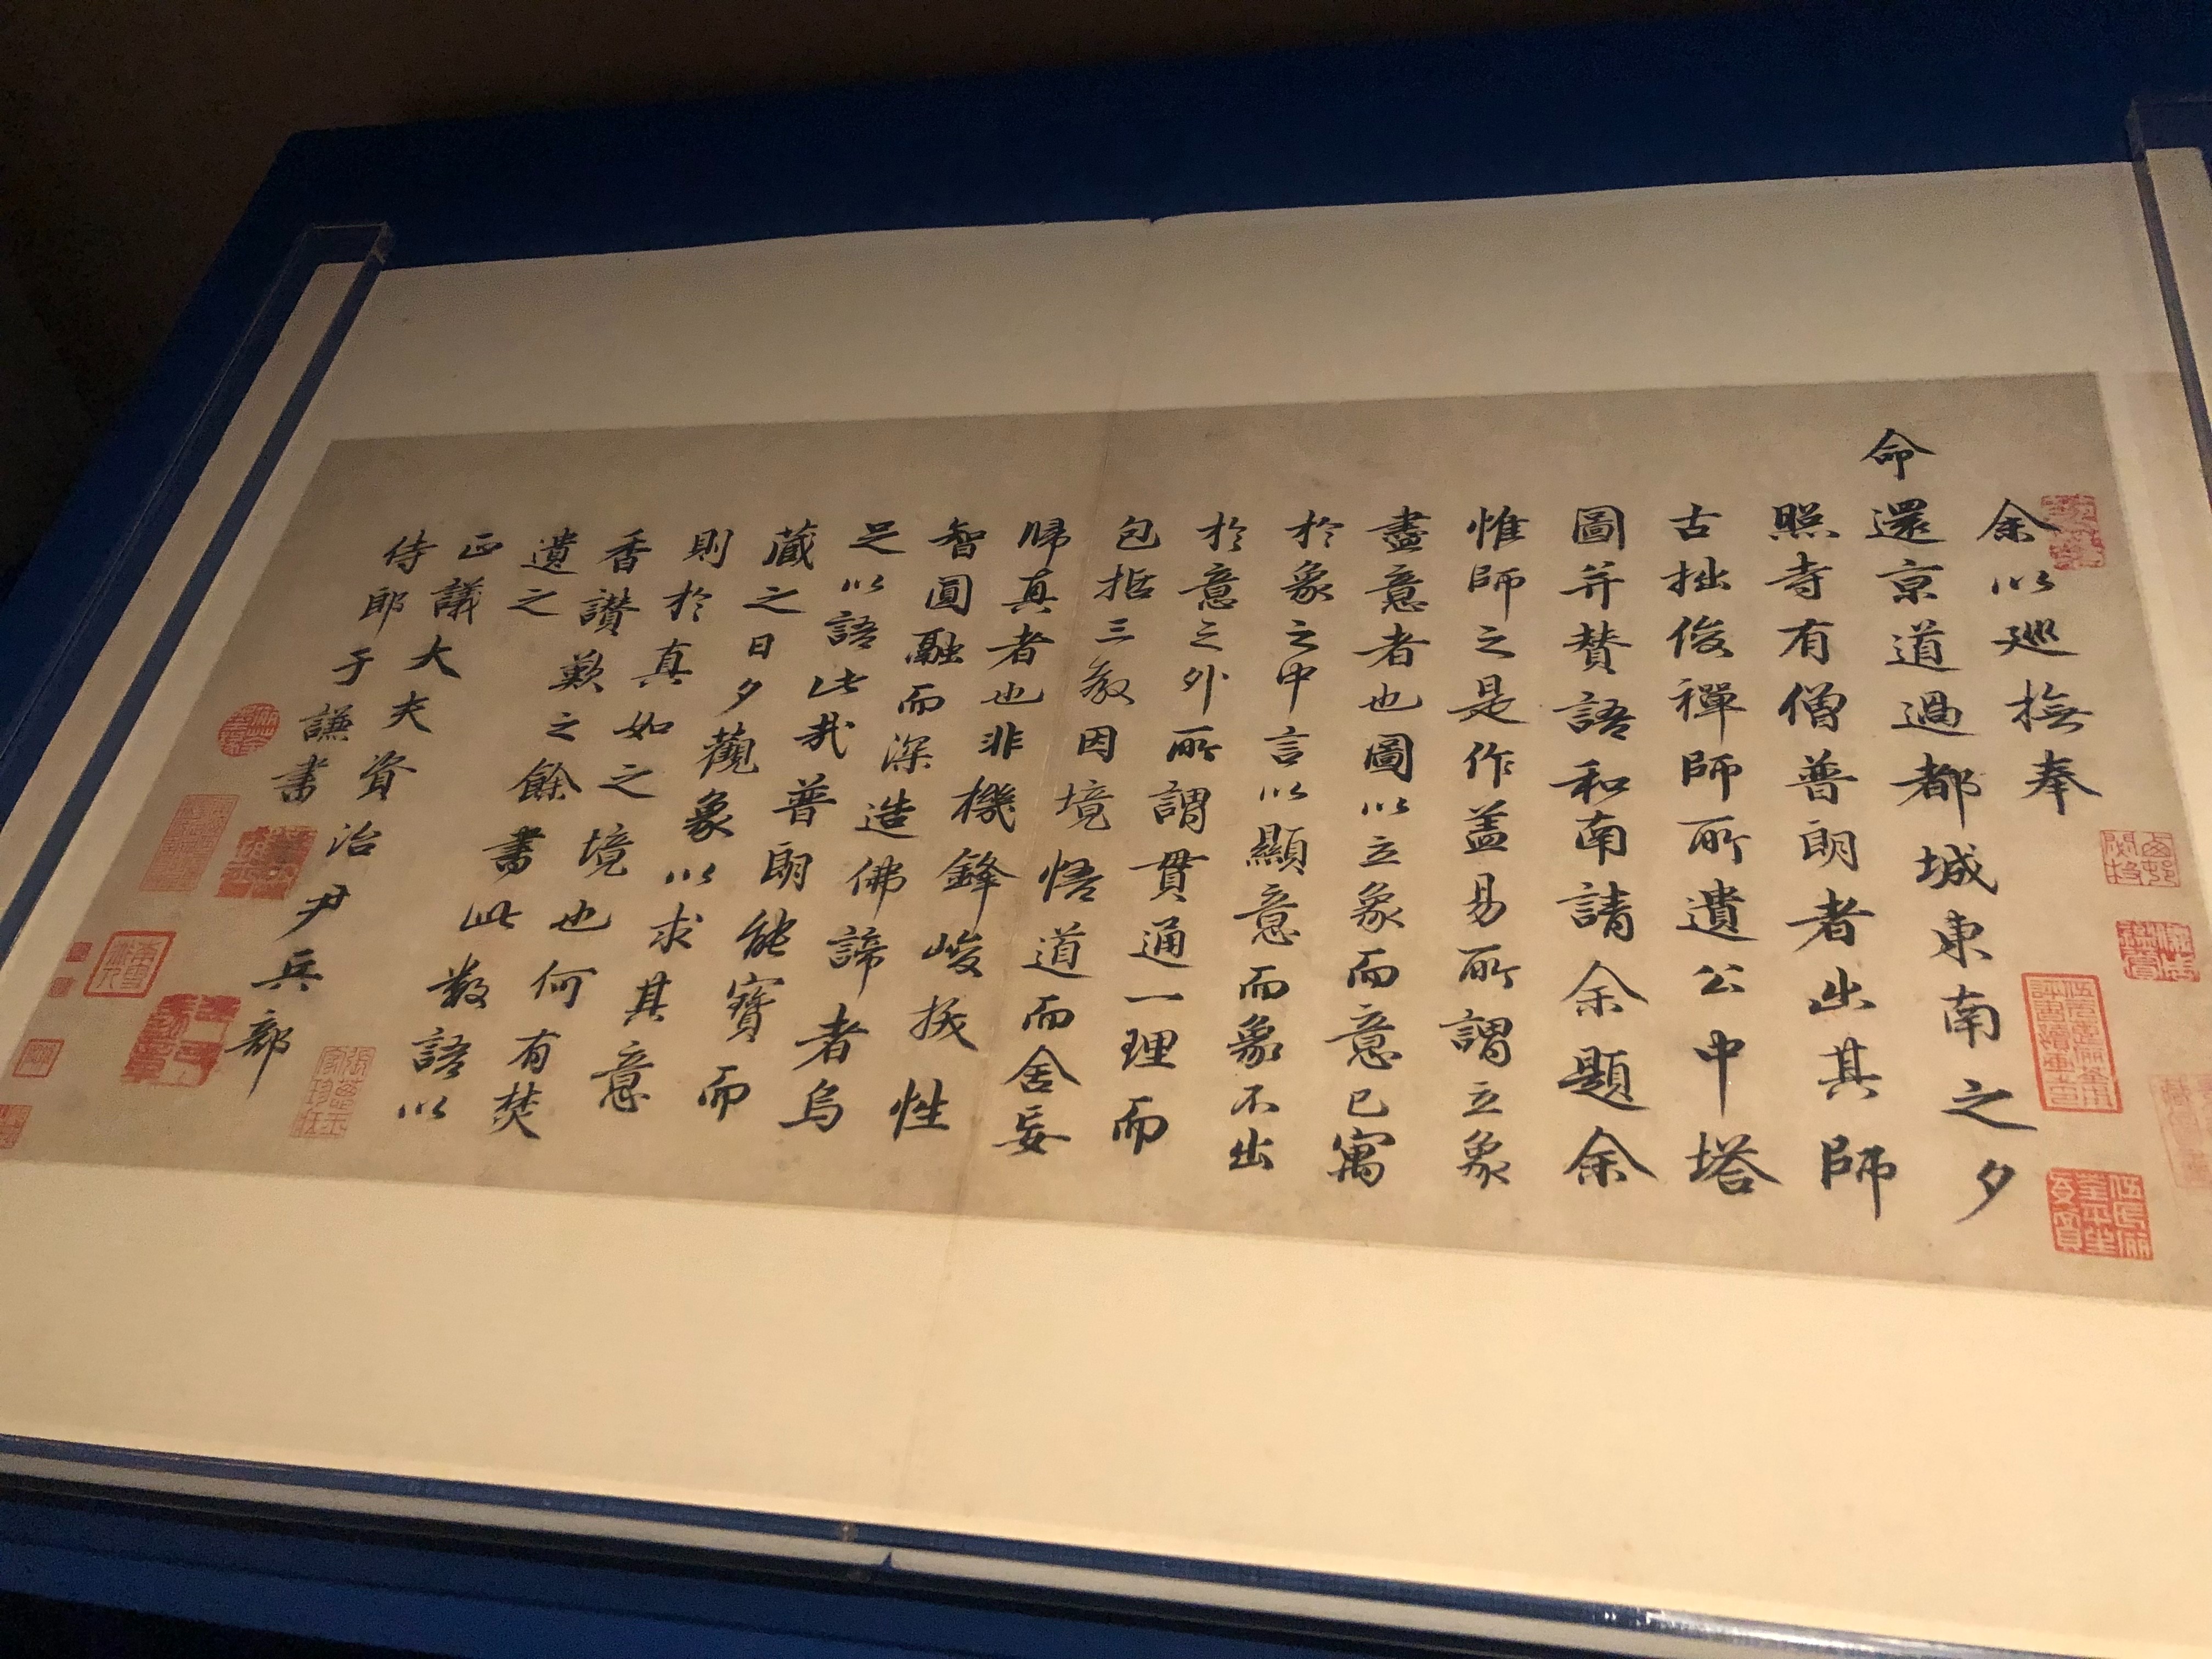 余以巡撫奉
命還京道過都城東南之夕
照寺有僧普朗者出其師
古拙俊禪師所遺公中塔
圖并贊語和南請余題余
惟師之是作盖易所謂立象
盡意者也圖以立象而意已寓
於象之中言以顯意而象不出
於意之外所謂貫通一理而
包括三教因境悟道而舍妄
歸真者也非機鋒峻拔性
智圓融而深造佛諦者烏
足以語此哉普朗能寶而
藏之日夕觀象以求其意
則於真如之境也何有焚
香讚歎之餘書此數語以
遺之
正議大夫資治尹兵部
侍郎于謙書